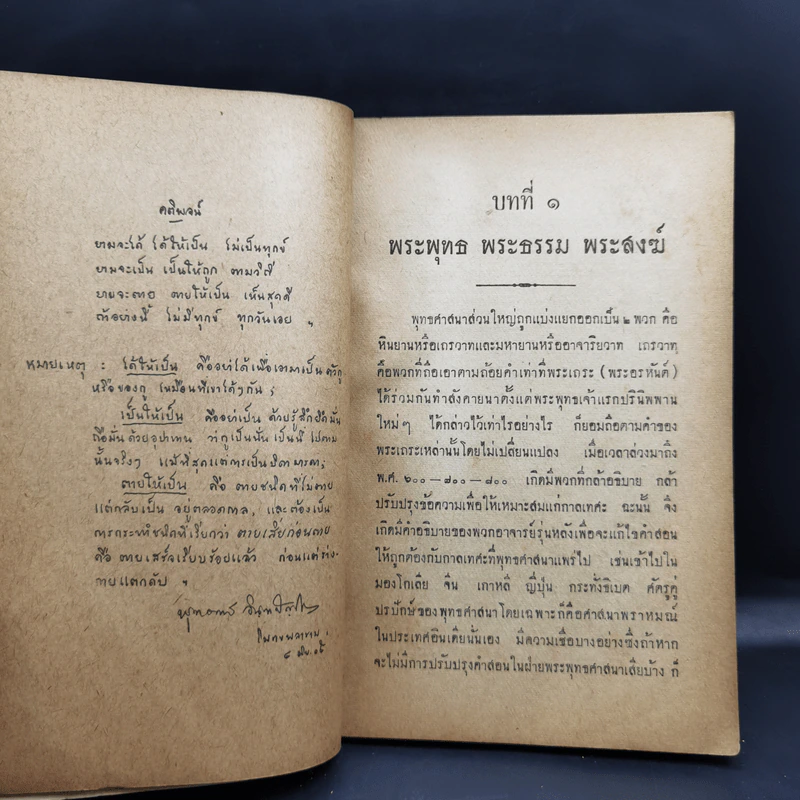 คติพจน์
ยามจะได้ ได้ให้เป็น ไม่เป็นทุกข์
ยามจะเป็น เป็นให้ถูก ตามวิถี
ยามจะตาย ตายให้เป็น เห็นสุดดี
ถ้าอย่างนี้ ไม่มีทุกข์ ทุกวันเอย ฯ
หมายเหตุ : ได้ให้เป็น คืออย่าได้เพื่อเอามาเป็นตัวกู
หรือของกู เหมือนที่เขาได้ๆกัน ;
เป็นให้เป็น คืออย่าเป็น ด้วยรู้สึกยึดมั่น
ถือมั่น ด้วยอุปาทาน ว่ากูเป็นนั่น เป็นนี่ ไปตาม
นั้นจริงๆ แม้ที่สุดแต่การเป็นบิดามารดา ;
ตายให้เป็น คือ ตายชนิดที่ไม่ตาย
แต่กลับเป็น อยู่ตลอดกาล, และต้องเป็น
การกระทำชนิดที่เรียกว่า ตายเสียก่อนตาย
คือ ตายเสร็จเรียบร้อยแล้ว ก่อนแต่ร่าง-
กายแตกดับ ฯ
พุทธทาส อินทปัญโญ
โมกขพลาราม
บทที่ ๑
พระพุทธ พระธรรม พระสงฆ์
พุทธศาสนาส่วนใหญ่ถูกแบ่งแยกออกเป็น ๒ พวก คือ
หินยานหรือเถรวาทและมหายานหรืออาจาริยวาท เถรวาท
คือพวกที่ถือเอาตามถ้อยคำเท่าที่พระเถระ (พระอรหันต์)
ได้ร่วมกันทำสังคายนาตั้งแต่พระพุทธเจ้าแรกปรินิพพาน
ใหม่ๆ ได้กล่าวไว้เท่าไรอย่างไร ก็ยอมถือตามคำของ
พระเถระเหล่านั้นโดยไม่เปลี่ยนแปลง เมื่อเวลาล่วงมาถึง
พ.ศ. ๖๐๐—๗๐๐—๘๐๐ เกิดมีพวกที่กล้าอธิบาย กล้า
ปรับปรุงข้อความเพื่อให้เหมาะสมแก่กาลเทศะ ฉะนั้น จึง
เกิดมีคำอธิบายของพวกอาจารย์รุ่นหลังเพื่อจะแก้คำสอน
ให้ถูกต้องกับกาลเทศะที่พุทธศาสนาแพร่ไป เช่นเข้าไปใน
มองโกเลีย จีน เกาหลี ญี่ปุ่น กระทั่งธิเบต ศัตรูคู่
ปรปักษ์ของพุทธศาสนาโดยเฉพาะก็คือศาสนาพราหมณ์
ในประเทศอินเดียนั้นเอง มีความเชื่อบางอย่างซึ่งถ้าหาก
จะไม่มีการปรับปรุงคำสอนในฝ่ายพระพุทธศาสนาเสียบ้าง ก็